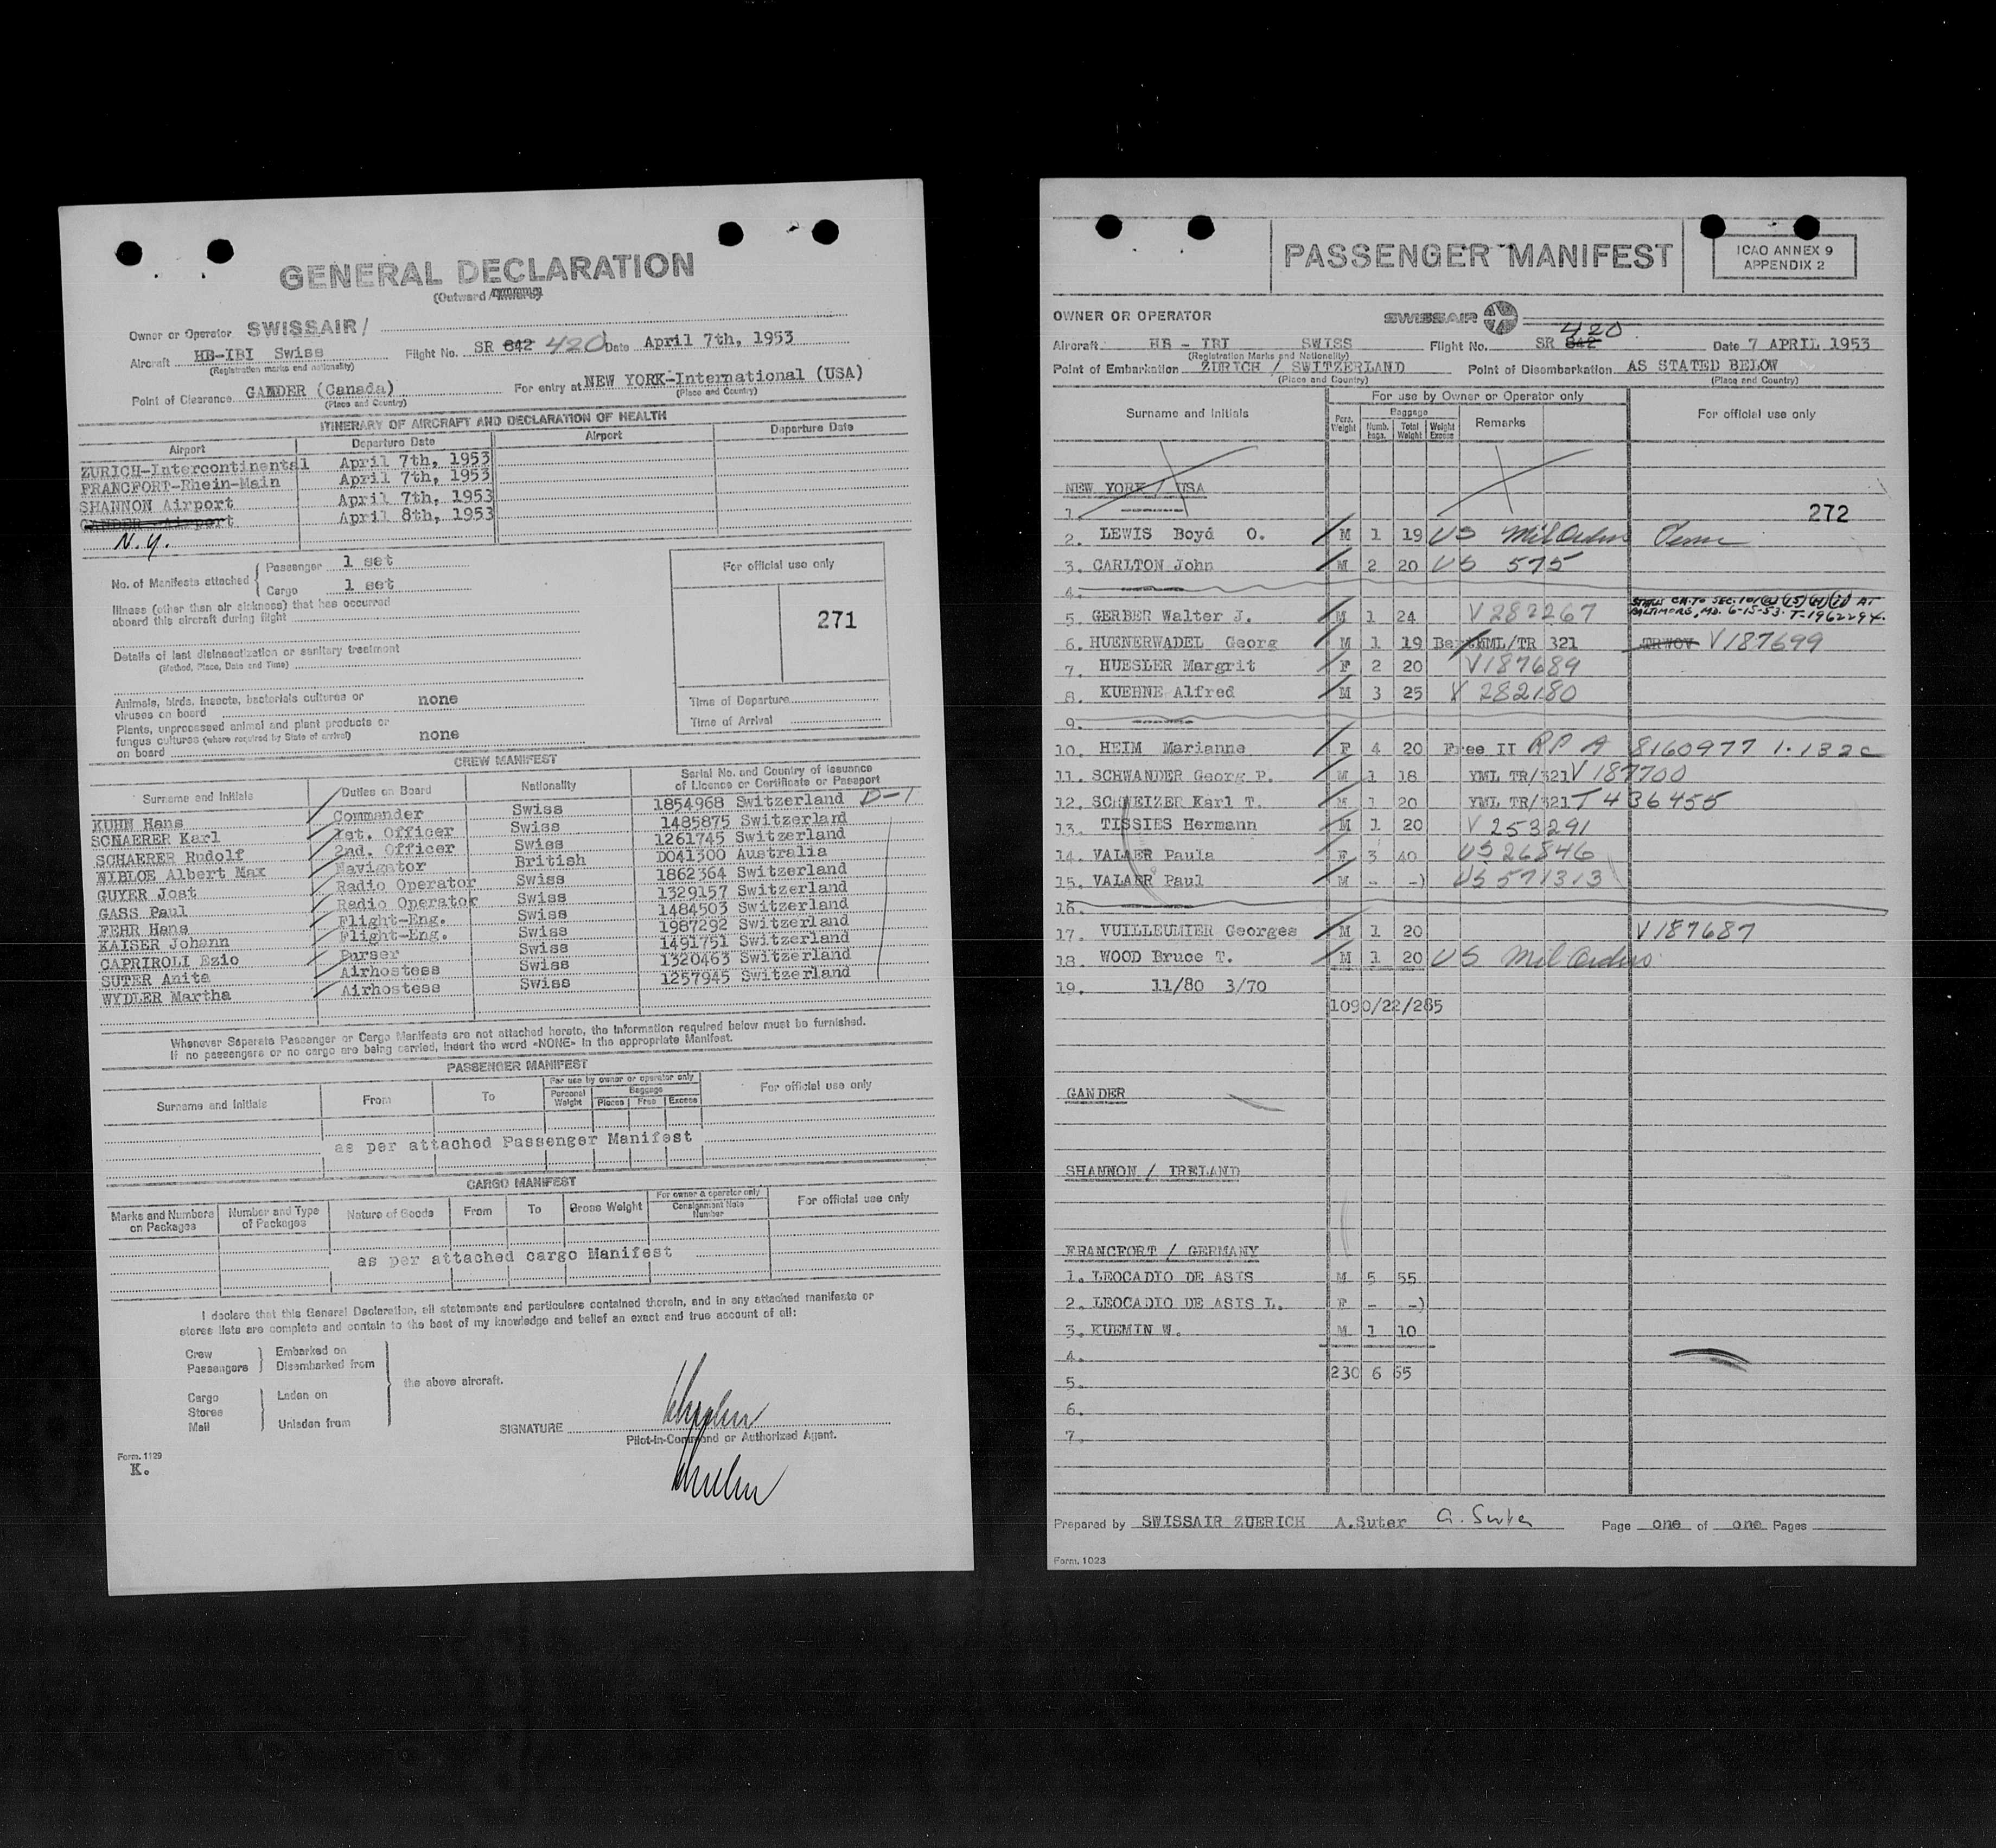 GENERAL DECLARATION
(Outward /
Owner or Operator SWISSAIR /
Aircraft HB-IBI Swiss Flight No. SR 842 420 Date April 7th, 1953
(Registration marks and nationality)
Point of Clearance GANDER (Canada) For entry at NEW YORK-International (USA)
(Place and Country) (Place and Country)
ITINERARY OF AIRCRAFT AND DECLARATION OF HEALTH
Airport Departure Date Airport Departure Date
ZURICH-Intercontinental April 7th, 1953
FRANCFORT-Rhein-Main April 7th, 1953
SHANNON Airport April 7th, 1953
GANDER Airport April 8th, 1953
N.Y.
No. of Manifests attached { Passenger 1 set
Cargo 1 set
Illness (other than air sickness) that has occurred
aboard this aircraft during flight
Details of last disinsectization or sanitary treatment
(Method, Place, Date and Time)
Animals, birds, insects, bacterials cultures or
viruses on board none
Plants, unprocessed animal and plant products or
fungus cultures (where required by State of arrival)
on board none
For official use only
271
Time of Departure
Time of Arrival
CREW MANIFEST
Surname and Initials Duties on Board Nationality Serial No. and Country of Issuance
of Licence or Certificate or Passport
KUHN Hans Commander Swiss 1854968 Switzerland D-1
SCHAERER Karl 1st. Officer Swiss 1485875 Switzerland
SCHAERER Rudolf 2nd. Officer Swiss 1261745 Switzerland
NIBLOE Albert Max Navigator British D041300 Australia
GUYER Jost Radio Operator Swiss 1862364 Switzerland
GASS Paul Radio Operator Swiss 1329157 Switzerland
FEHR Hans Flight-Eng. Swiss 1484503 Switzerland
KAISER Johann Flight-Eng. Swiss 1987292 Switzerland
CAPRIROLI Ezio Purser Swiss 1491751 Switzerland
SUTER Anita Airhostess Swiss 1320463 Switzerland
WYDLER Martha Airhostess Swiss 1257945 Switzerland
Whenever Seperate Passenger or Cargo Manifests are not attached hereto, the information required below must be furnished.
If no passengers or no cargo are being carried, insert the word «NONE» in the appropriate Manifest.
PASSENGER MANIFEST
Surname and Initials From To For use by owner or operator only For official use only
Personal Weight Baggage
Pieces Free Excess
as per attached Passenger Manifest
CARGO MANIFEST
Marks and Numbers on Packages Number and Type of Packages Nature of Goods From To Gross Weight For owner & operator only Consignment Note Number For official use only
as per attached cargo Manifest
I declare that this General Declaration, all statements and particulars contained therein, and in any attached manifests or
stores lists are complete and contain to the best of my knowledge and belief an exact and true account of all:
Crew } Embarked on
Passengers Disembarked from
the above aircraft.
Cargo } Laden on
Stores
Mail Unladen from
SIGNATURE
Pilot-in-Command or Authorized Agent.
Form. 1129
K.
PASSENGER MANIFEST
ICAO ANNEX 9
APPENDIX 2
OWNER OR OPERATOR SWISSAIR
420
Aircraft HB - IBI SWISS Flight No. SR 842 Date 7 APRIL 1953
(Registration Marks and Nationality)
Point of Embarkation ZURICH / SWITZERLAND Point of Disembarkation AS STATED BELOW
(Place and Country) (Place and Country)
Surname and Initials For use by Owner or Operator only For official use only
Pers. Weight Baggage Remarks
Numb. bags. Total Weight Weight Excess
NEW YORK / USA
1. 272
2. LEWIS Boyd O. M 1 19 US Mil Orders
3. CARLTON John M 2 20 US 575
4.
5. GERBER Walter J. M 1 24 V 282267 STATUS CH. TO SEC. 101(a)(15) AT
BALTIMORE, MD. 6-15-53. T-1962294.
6. HUENERWADEL Georg M 1 19 YML/TR 321 V187699
7. HUESLER Margrit F 2 20 V187689
8. KUEHNE Alfred M 3 25 V 282180
9.
10. HEIM Marianne F 4 20 Free II RP A 8160977 1-132c
11. SCHWANDER Georg P. M 1 18 YML TR/321 V 187700
12. SCHWEIZER Karl T. M 1 20 YML TR/321 T 436455
13. TISSIES Hermann M 1 20 V 253291
14. VALAER Paula F 3 40 US 26846
15. VALAER Paul M - -) US 571313
16.
17. VUILLEUMIER Georges M 1 20 V187687
18. WOOD Bruce T. M 1 20 US Mil Orders
19. 11/80 3/70
1090/22/285
GANDER
SHANNON / IRELAND
FRANCFORT / GERMANY
1. LEOCADIO DE ASIS M 5 55
2. LEOCADIO DE ASIS L. F - -)
3. KUEMIN W. M 1 10
4.
230 6 65
5.
6.
7.
Prepared by SWISSAIR ZUERICH A.Suter a. Suter Page one of one Pages
Form. 1023